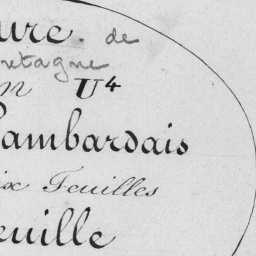 ure. de
etagne
n U4
Cambardais
ix Feuilles
euille